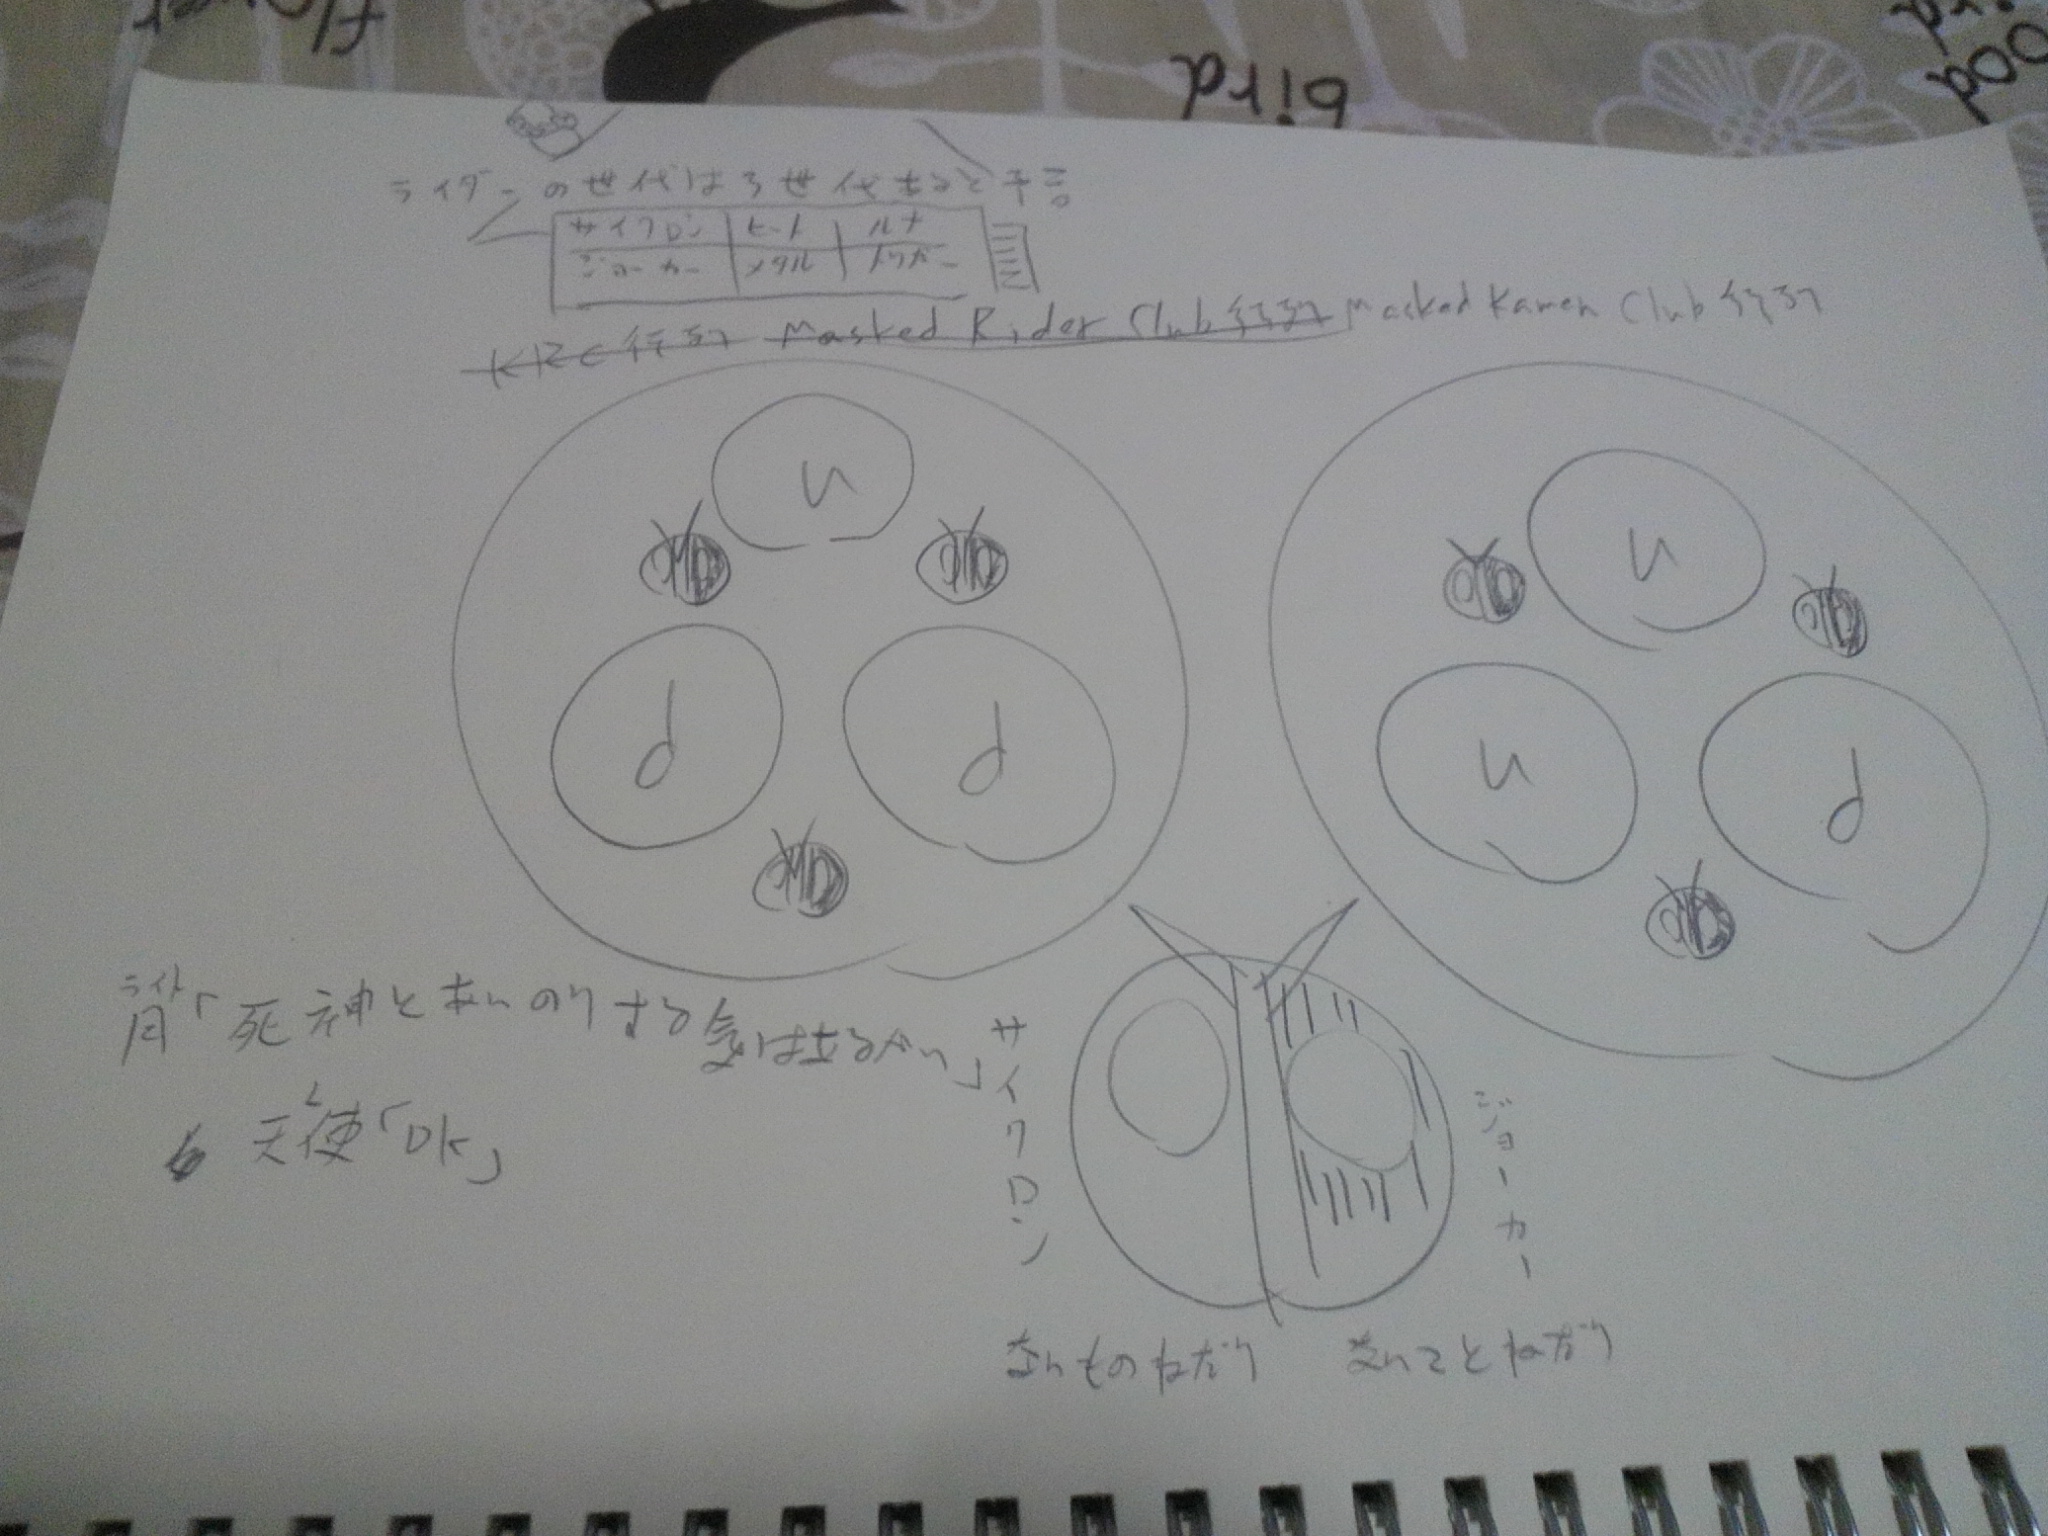 flower
bird
ライダーの世代は3世代あると予言
サイクロン ヒート ルナ
ジョーカー メタル トリガー
KRC行列 Masked Rider Club行列 Masked Kamen Club行列
u u
d d u d
ライト
月「死神とあいのりする気はあるかい」
天使「OK」
サイクロン
ジョーカー
ないものねだり ないことねだり